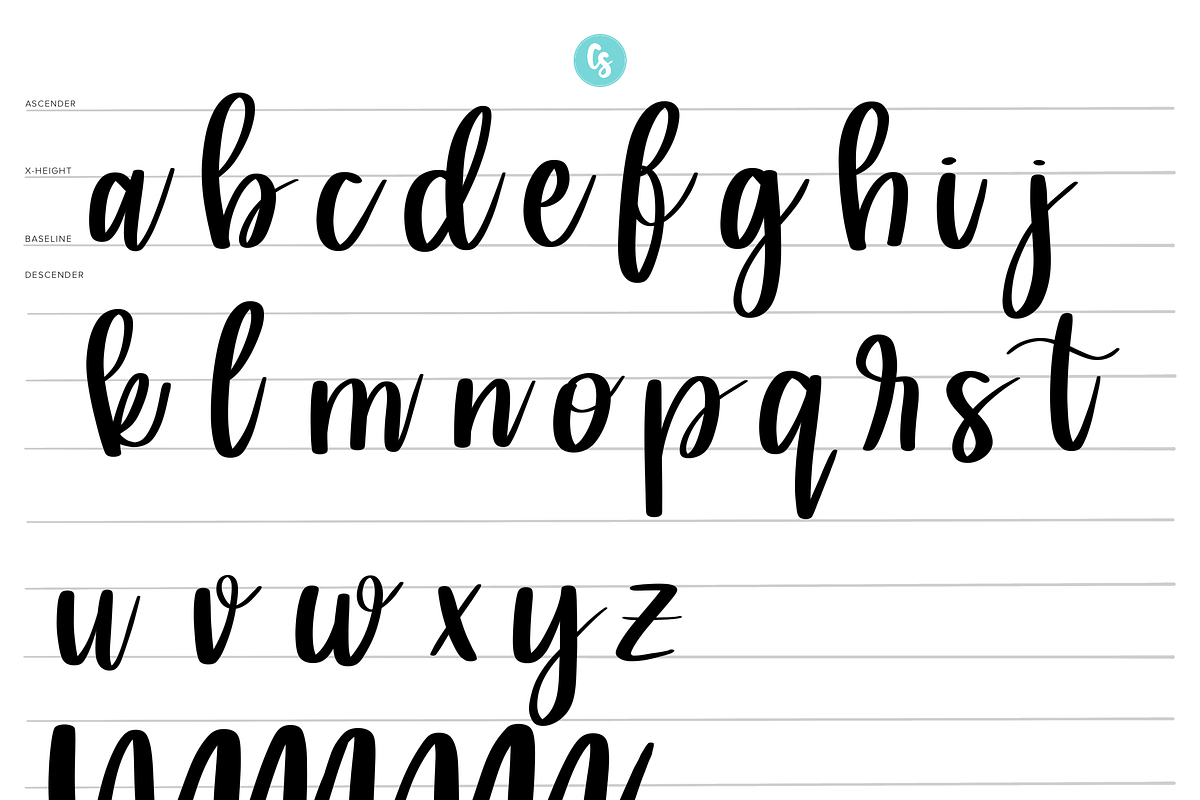 CS
ASCENDER
X-HEIGHT
BASELINE
DESCENDER
a b c d e f g h i j
k l m n o p q r s t
u v w x y z